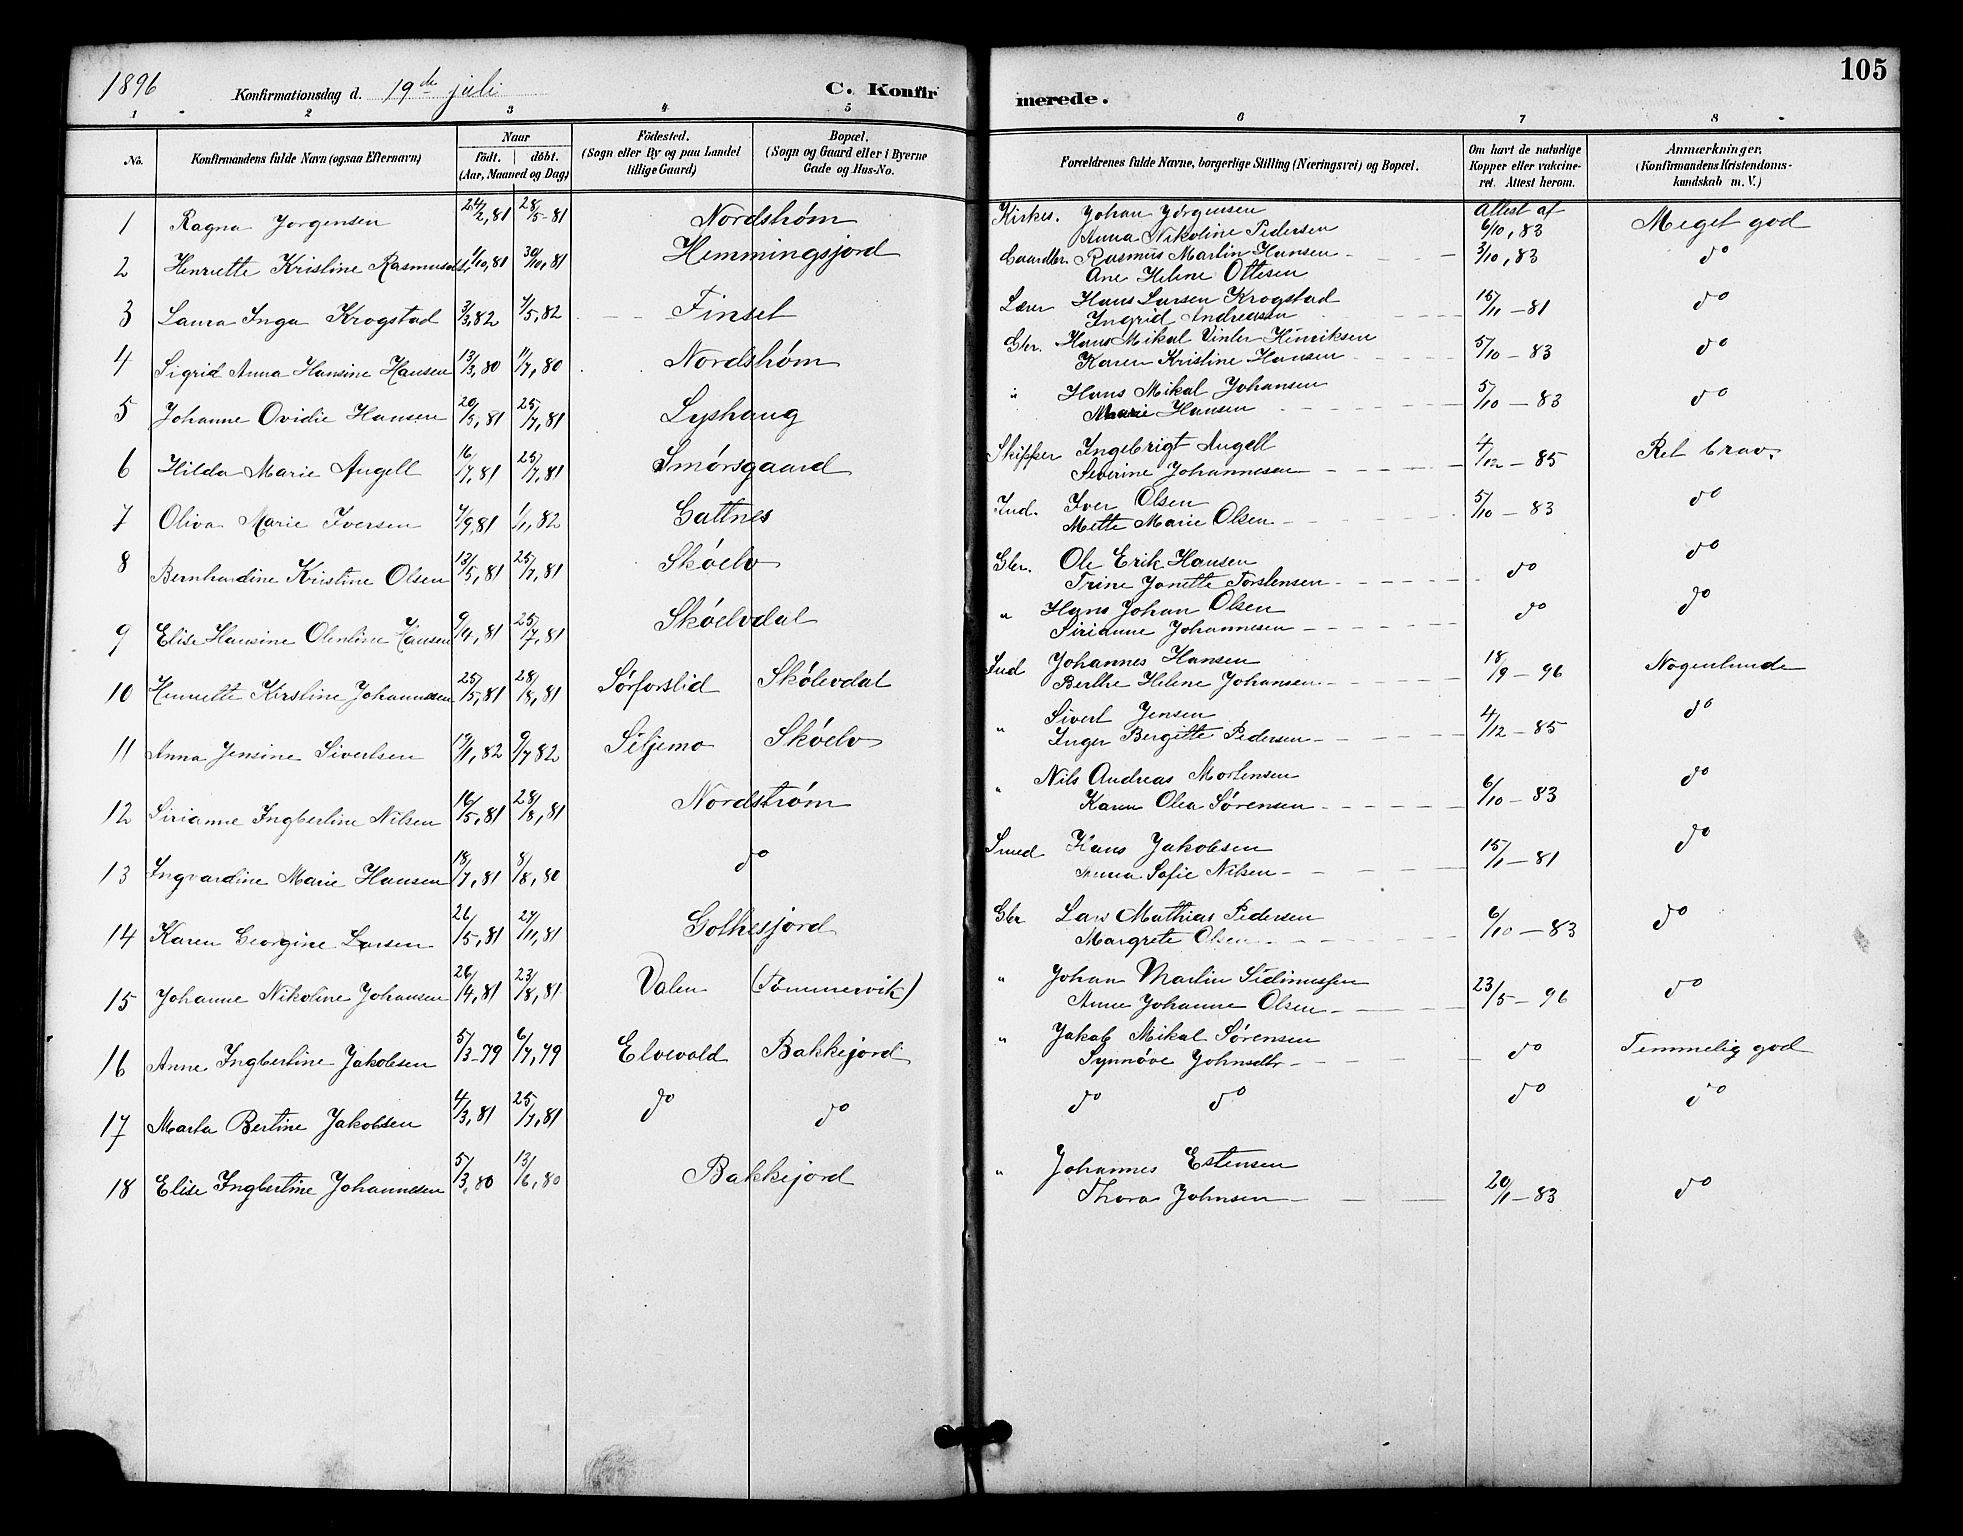 1896 Konfirmationsdag d. 19de juli C. Konfirmerede. 105
1 2 3 4 5 6 7 8
No. Konfirmandens fulde Navn (ogsaa Efternavn) Naar født. døbt. (Aar, Maaned og Dag) Födested. (Sogn eller By og paa Landet tillige Gaard) Bopæl. (Sogn og Gaard eller i Byerne Gade og Hus-No. Forældrenes fulde Navne, borgerlige Stilling (Næringsvei) og Bopæl. Om havt de naturlige Kopper eller vakcineret. Attest herom. Anmærkninger. (Konfirmandens Kristendomskundskab m. V.)
1 Ragna Jørgensen 24/2,81 28/5-81 Nordstrøm Kirkes. Johan Jørgensen Attest af Meget god
Anna Nikoline Pedersen 6/10,83
2 Henriette Kristine Rasmusdtr 1/10,81 30/10,81 Hemmingsjord Gaardbr. Rasmus Martin Hansen 3/10,83 do
Ane Helene Ottesen
3 Laura Inga Krogstad 3/3,82 7/5,82 Finset Lærer Hans Larsen Krogstad 15/11-81 do
Ingrid Andreasen
4 Sigrid Anna Hansine Hansen 13/3,80 11/7,80 Nordstrøm Gbr. Hans Mikal Vinter Hinriksen 5/10-83 do
Karen Kristine Hansen
5 Johanne Ovidie Hansen 20/5,81 25/7,81 Lyshaug " Hans Mikal Johansen 5/10-83 do
Marie Hansen
6 Hilda Marie Angell 16/7,81 25/7,81 Smørsgaard Skipper Ingebrigt Angell 4/12-85 Ret brav.
Severine Johannesen
7 Oliva Marie Iversen 7/9,81 1/1,82 Gattnes Ind. Iver Olsen 5/10-83 do
Mette Marie Olsen
8 Bernhardine Kristine Olsen 13/5,81 25/7,81 Skøelv Gbr. Ole Erik Hansen do do
Trine Janette Torstensen
9 Elise Hansine Olentine Hansen 9/4,81 25/7,81 Skøelvdal " Hans Johan Olsen do do
Sirianne Johannesen
10 Henriette Kirstine Johannesen 25/5,81 28/8,81 Sørforslid Skølevdal Ind Johannes Hansen 18/9-96 Nogenlunde
Berthe Helene Johansen
11 Anna Jensine Sivertsen 19/1,82 9/7 82 Siljemo Skøelv " Sivert Jensen 4/12-85 do
Inger Bergitte Pedersen
12 Sirianne Ingbertine Nilsen 16/5,81 28/8,81 Nordstrøm " Nils Andreas Mortensen 6/10-83 do
Karen Olea Sørensen
13 Ingvardine Marie Hansen 18/7,81 8/8,80 do Smed Hans Jakobsen 15/11-81 do
Anna Sofie Nilsen
14 Karen Georgine Larsen 26/5,81 27/11,81 Gothesjord Gbr Lars Mathias Pedersen 6/10-83 do
Margrete Olsen
15 Johanne Nikoline Johansen 26/4,81 23/8,81 Valen (Tømmervik) " Johan Martin 23/5-96 do
Anne Johanne Olsen
16 Anne Ingbertine Jakobsen 5/3-79 6/7,79 Elvevold Bakkejord " Jakob Mikal Sørensen do Temmelig god
Synnøve Johnsdtr
17 Marta Bertine Jakobsen 4/3,81 25/7,81 do do do do do do
18 Elise Ingbertine Johannesen 5/3,80 13/6,80 Bakkejord " Johannes Estensen 20/11-83 do
Thora Johnsen